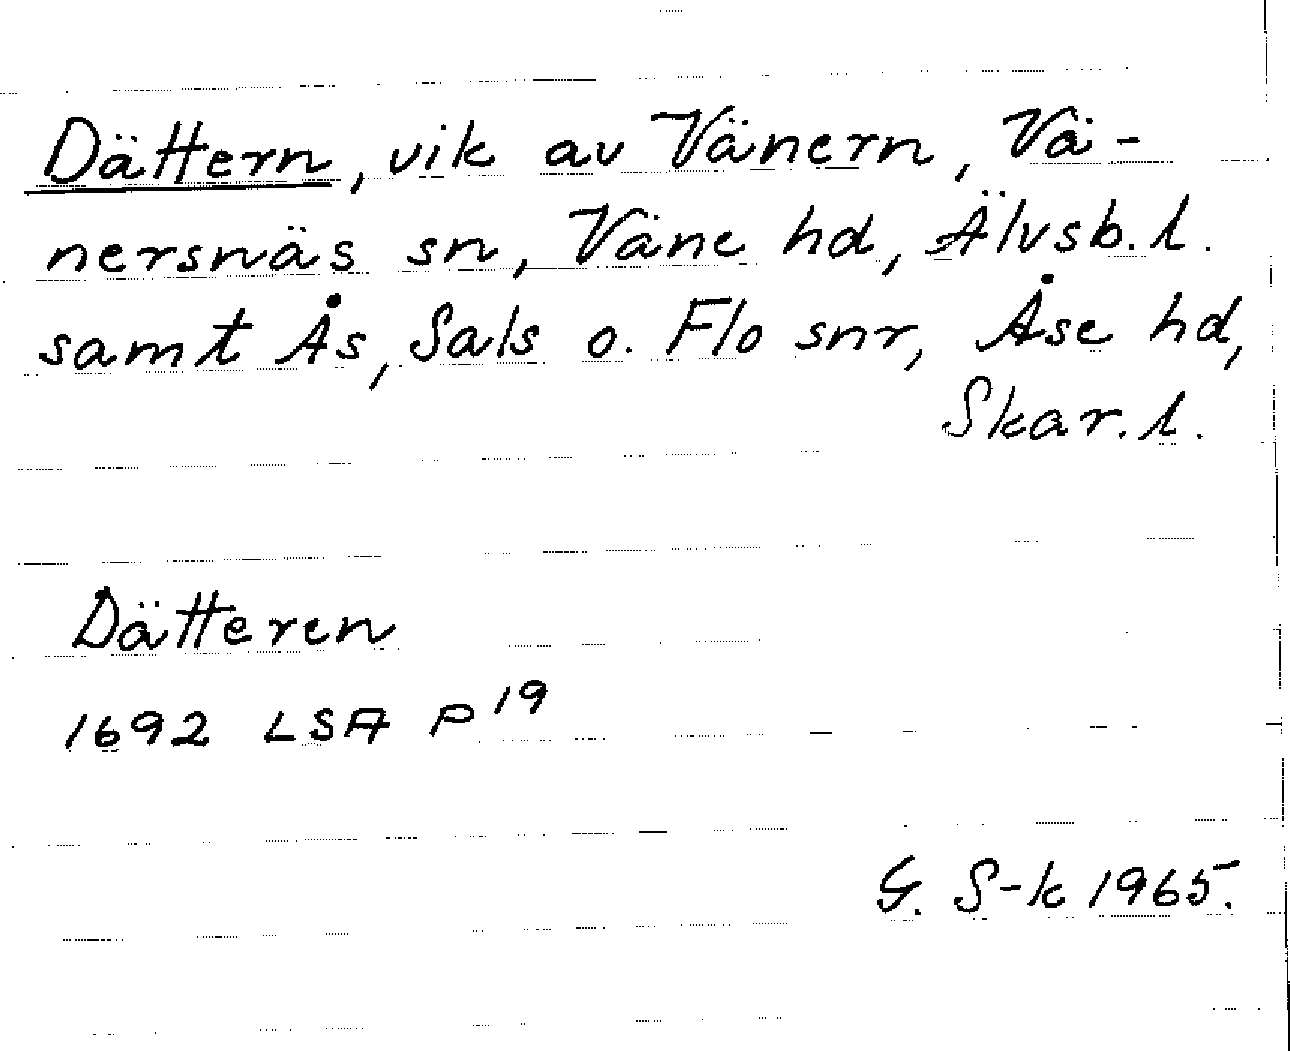 Dättern, vik av Vänern, Vä-
nersnäs sn, Väne hd, Älvsb. l.
samt Ås, Sals o. Flo snr, Åse hd,
Skar. l.
Dätteren
1692 LSA P 19
G. S-k 1965.